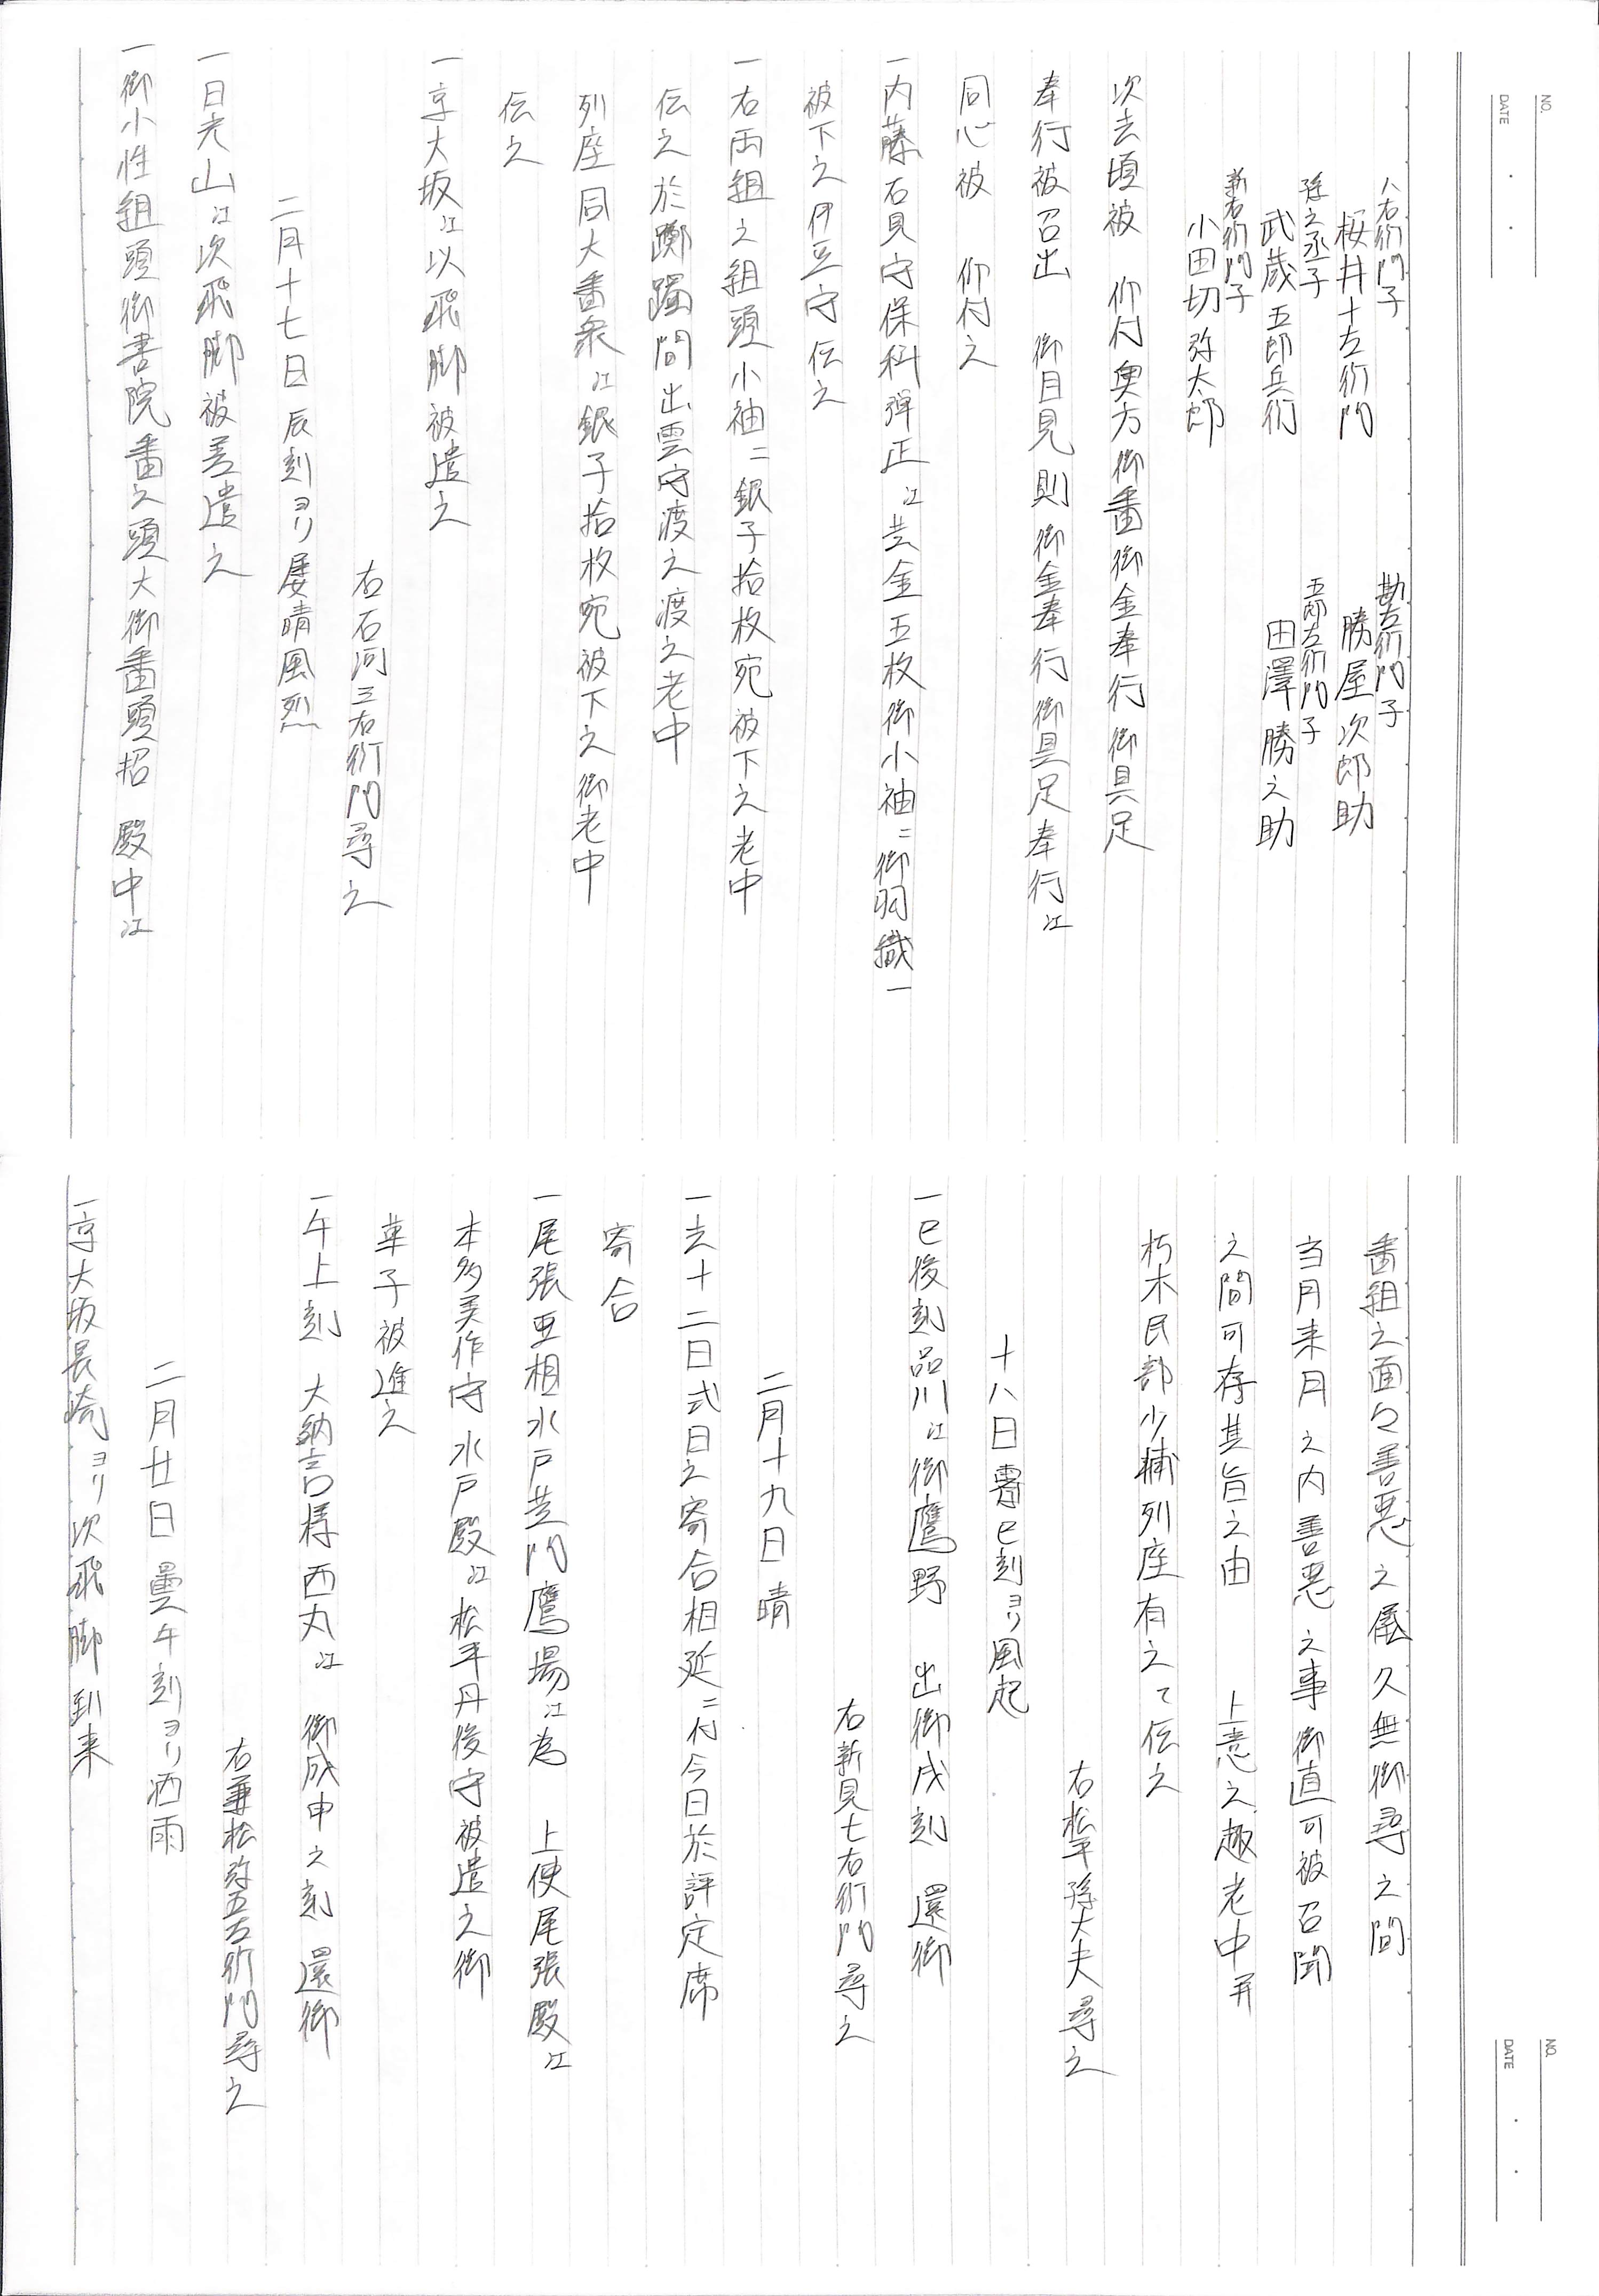 NO.
DATE
八右衛門子
桜井十左衛門
勘左衛門子
勝屋次郎助
孫之丞子
武蔵五郎兵衛
五郎左衛門子
田澤勝之助
新右衛門子
小田切弥太郎
次去頃被 仰付奥方御番御金奉行御具足
奉行被召出 御目見則御金奉行御具足奉行江
同心被 仰付之
一内藤石見守保科弾正江黄金五枚御小袖二御羽織一
被下之伊豆守伝之
一右両組之組頭小袖二銀子拾枚宛被下之老中
伝之於躑躅間出雲守渡之渡之老中
列座同大番衆江銀子拾枚宛被下之御老中
伝之
一京大坂江以飛脚被遣之
右石河三右衛門尋之
二月十七日辰刻ヨリ屡晴風烈
一日光山江次飛脚被差遣之
一御小性組頭御書院番之頭大御番頭招 殿中江
NO.
DATE
番組之面々善悪之儀久無御尋之間
当月来月之内善悪之事御直可被召聞
之間可存其旨之由 上意之趣老中并
朽木民部少輔列座有之て伝之
右松平孫大夫尋之
十八日曇巳刻ヨリ風起
一巳後刻品川江御鷹野 出御戌刻 還御
右新見七右衛門尋之
二月十九日晴
一去十二日式日之寄合相延二付今日於評定席
寄合
一尾張亜相水戸黄門鷹場江為 上使尾張殿江
本多美作守水戸殿江松平丹後守被遣之御
菓子被進之
一午上刻 大納言様西丸江 御成申之刻 還御
右兼松弥五左衛門尋之
二月廿日曇午刻ヨリ洒雨
一京大坂長崎ヨリ次飛脚到来